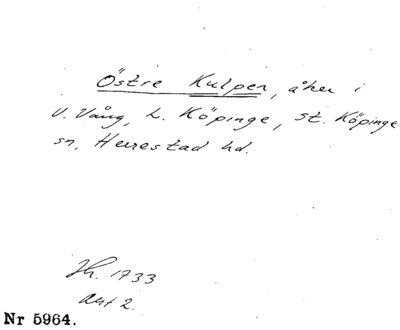 Östre Kulpen, åker i
V. Vång, L. Köpinge, St. Köpinge
sn, Herrestad hd.
Jh. 1733
akt 2.
Nr 5964.